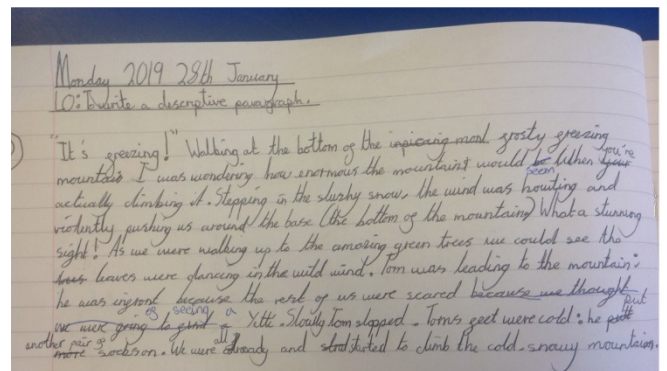 Monday 2019 28th January
LO: To write a descriptive paragraph.
"It's freezing!" Walking at the bottom of the frosty freezing
mountain I was wondering how enormous the mountaint would seem when you're
actually climbing it. Stepping in the slushy snow, the wind was howling and
violently pushing us around the base (the bottom of the mountaing) What a stunning
sight! As we were walking up to the amazing green trees we could see the
leaves were dancing in the wild wind. Tom was leading to the mountain:
he was infront because the rest of us were scared because we thought
of seeing a Yttc. Slowly Tom stopped. Toms feet were cold: he put
another pair of sockson. We were already and started to climb the cold snowy mountain.